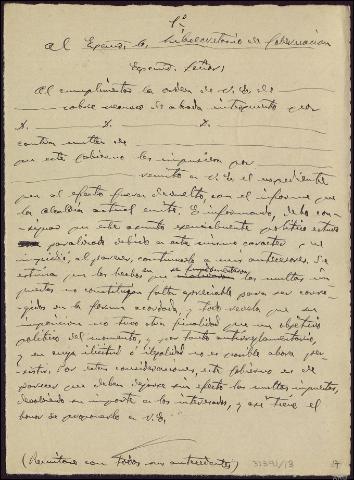 1º
Al Excmo. Sr. Subsecretario de Gobernación
Excmo. Señor:
Al cumplimentar la orden de V.E. de
sobre recurso de alzada interpuesto por
X. X. X.
contra multas de
que este Gobierno les impusiera por
remito a V.E. el expediente
que al efecto fuera devuelto, con el informe que
la Alcaldía actual emite. E informando, debo con-
signar que este asunto esencialmente político estuvo
paralizado debido a este mismo carácter y
impidió, al parecer, continuarlo a mis antecesores. Se
estima que los hechos en que se fundamentaron las multas im
puestas no constituyen falta apreciable para ser corre-
gidos en la forma acordada, y todo revela que su
imposición no tuvo otra finalidad que un objetivo
político del momento, y por tanto antirreglamentario,
y en cuya ilicitud e ilegalidad no es posible ahora per-
sistir. Por estas consideraciones, este Gobierno es de
parecer que deben dejarse sin efecto las multas impuestas,
devolviendo su importe a los interesados, y así tiene el
honor de proponerlo a V.E.
(Remítase con todos sus antecedentes)
31391/13